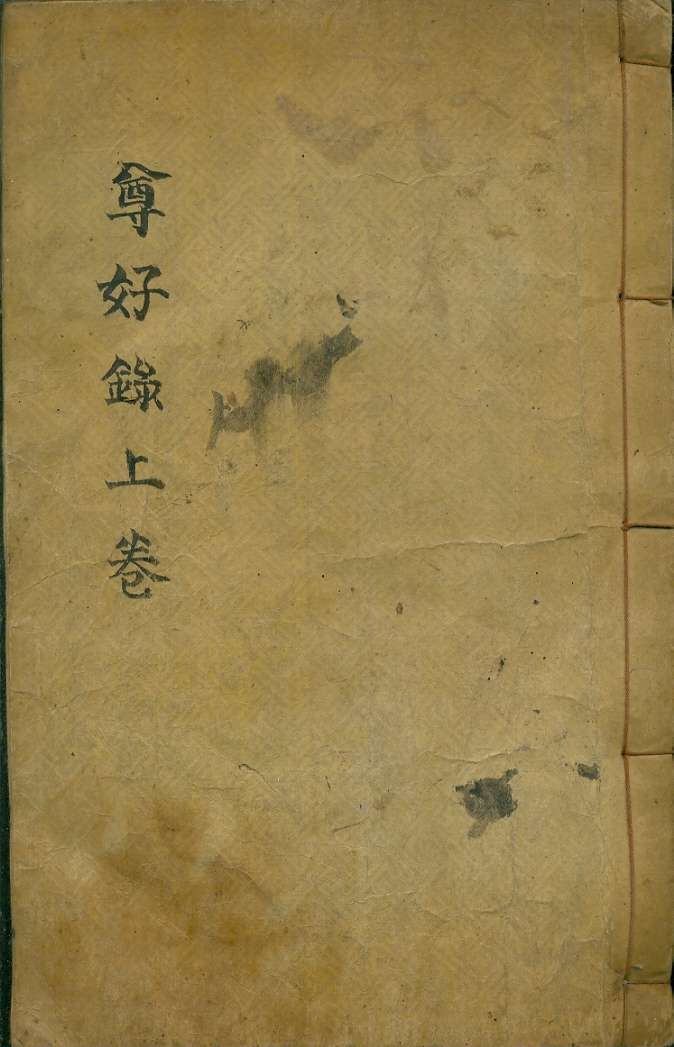 尊好錄上卷